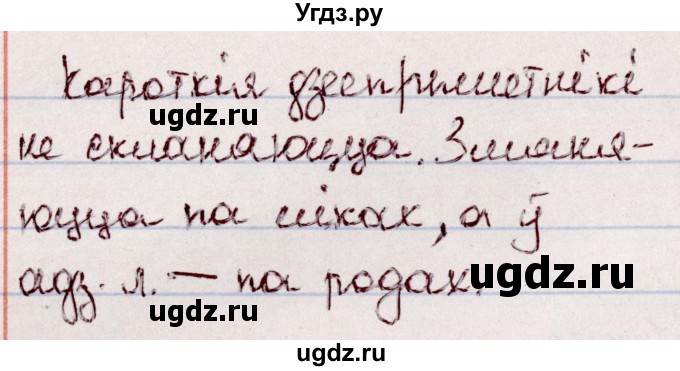 Угдз.ру
Кароткія дзеепрыметнікі
ugdz.ru ugdz.ru
не скланяюцца. Змяня-
юцца па ліках, а ў
адз. л. — па родах.
ugdz.ru
ugdz.ru
ugdz.ru